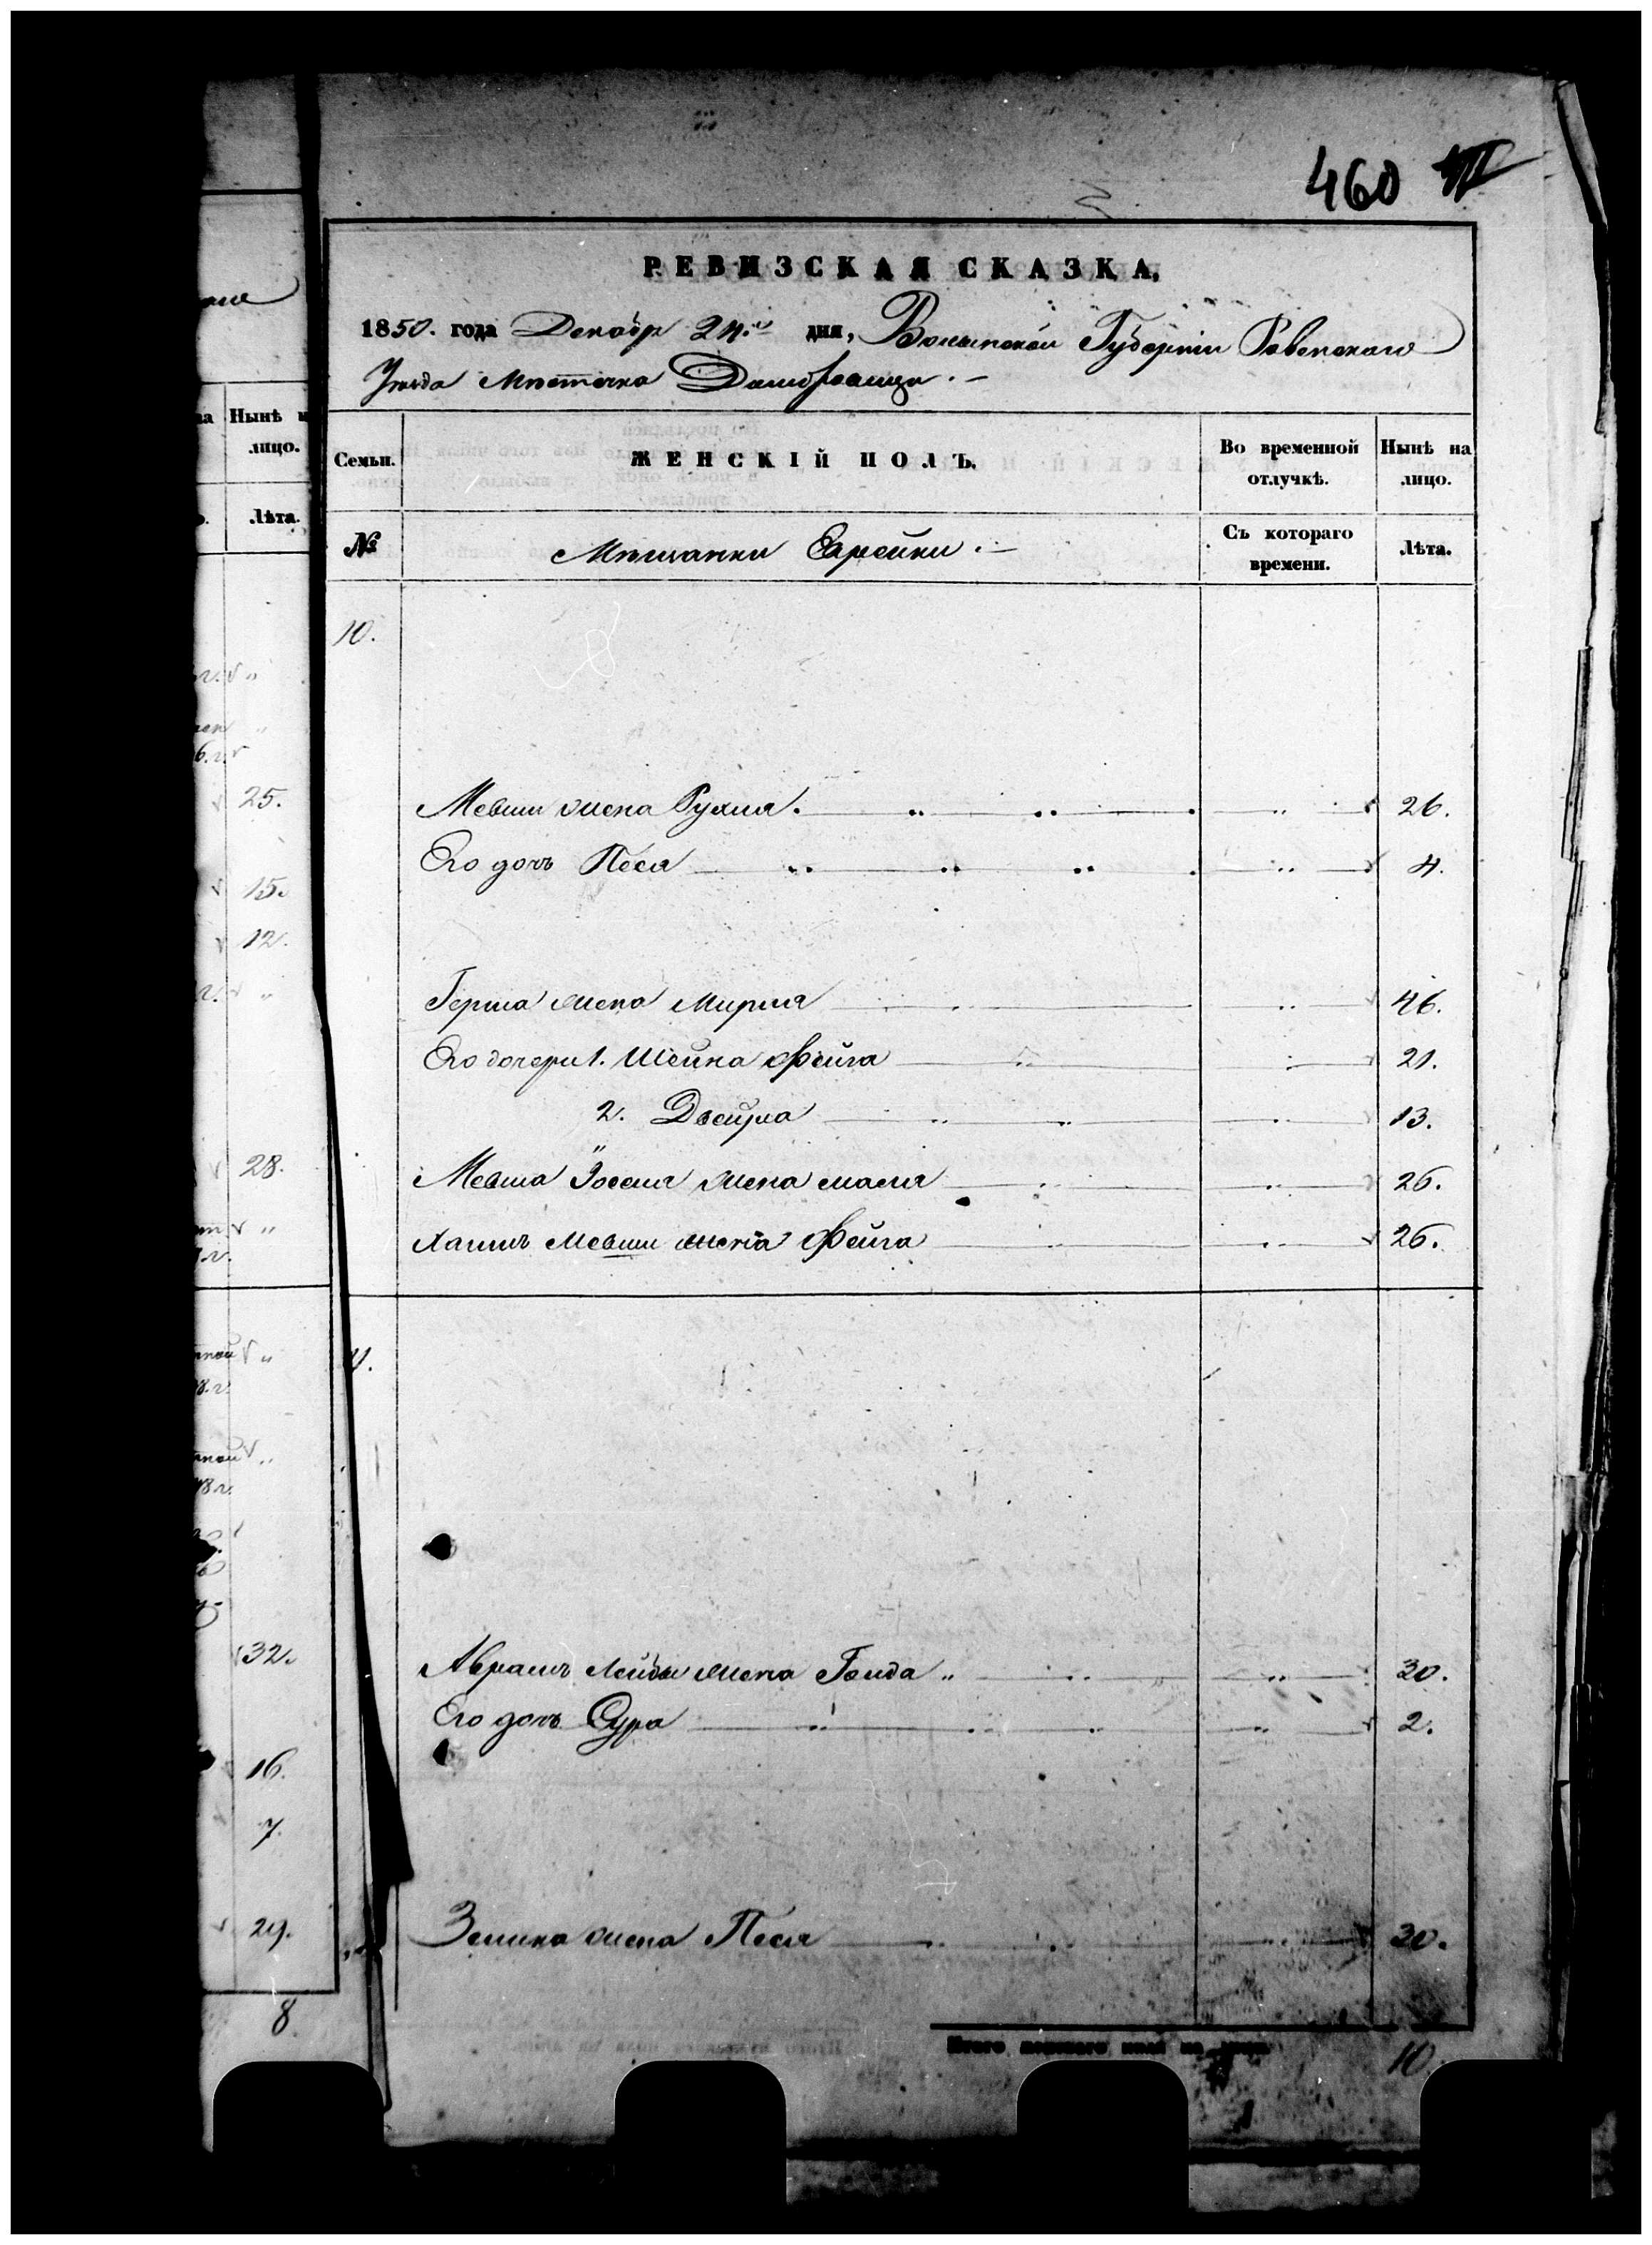 460
РЕВИЗСКАЯ СКАЗКА,
1850. года Декабр 24.го дня, Волынской Губерніи Ровенского
Уѣзда Мѣстечка Домбровици
на Нынѣ н
лицо.
Лѣта.
Семьи. ЖЕНСКІЙ ПОЛЪ. Во временной отлучкѣ. Нынѣ на лицо.
№ Мѣщанки Еврейки. Съ котораго времени. Лѣта.
10.
25. Мевши жена Рухля. 26.
Его дочь Песя 4.
15.
12.
Герша жена Мирля 46.
Его дочери 1. Шейна Фейга 21.
2. Двейра 13.
28. Мевша Іоселя жена Маля 26.
Хаимъ Мевши жена Фейга 26.
11.
32. Аврамъ Лейбы жена Голда 30.
Его дочь Сура 2.
16.
7.
29. Зелика жена Песя 30.
8
Итого женского пола на лицо 10.